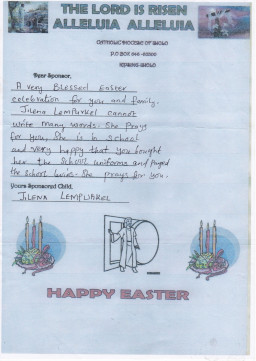 THE LORD IS RISEN
ALLELUIA ALLELUIA
CATHOLIC DIOCESE OF
P.O BOX
Dear Sponsor,
A very BLESSED Easter
celebration for you and family.
Jilena Lempurkel cannot
write many words. She Prays
for you, She is in School
and very happy that you bought
her the School uniforms and payed
the school She prays for you.
Yours Sponsored Child.
JILENA LEMPURKEL
HAPPY EASTER